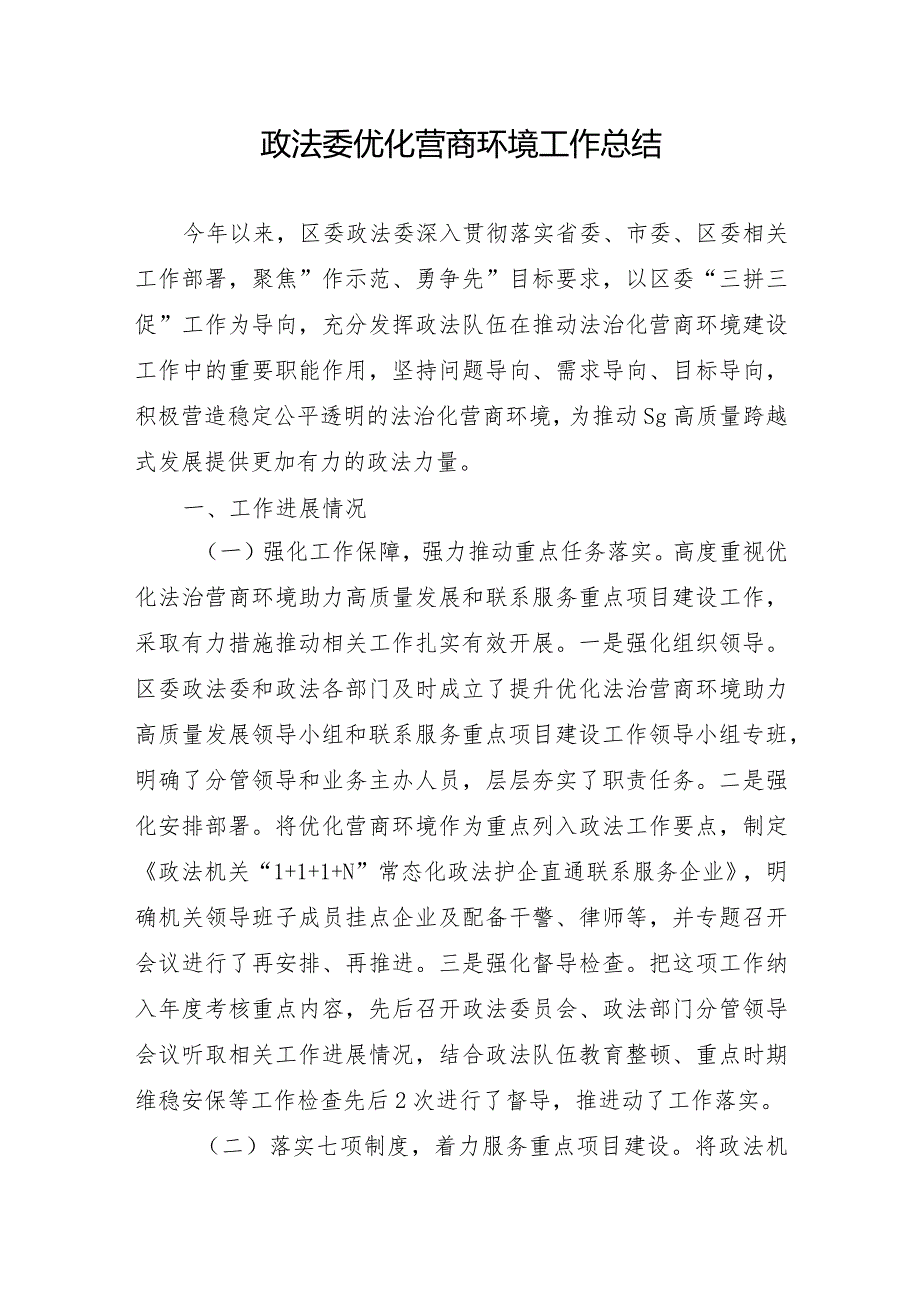 政法委优化营商环境工作总结
今年以来，区委政法委深入贯彻落实省委、市委、区委相关
工作部署，聚焦”作示范、勇争先”目标要求，以区委“三拼三
促”工作为导向，充分发挥政法队伍在推动法治化营商环境建设
工作中的重要职能作用，坚持问题导向、需求导向、目标导向，
积极营造稳定公平透明的法治化营商环境，为推动Sg高质量跨越
式发展提供更加有力的政法力量。
一、工作进展情况
（一）强化工作保障，强力推动重点任务落实。高度重视优
化法治营商环境助力高质量发展和联系服务重点项目建设工作，
采取有力措施推动相关工作扎实有效开展。一是强化组织领导。
区委政法委和政法各部门及时成立了提升优化法治营商环境助力
高质量发展领导小组和联系服务重点项目建设工作领导小组专班，
明确了分管领导和业务主办人员，层层夯实了职责任务。二是强
化安排部署。将优化营商环境作为重点列入政法工作要点，制定
《政法机关“1+1+1+N”常态化政法护企直通联系服务企业》，明
确机关领导班子成员挂点企业及配备干警、律师等，并专题召开
会议进行了再安排、再推进。三是强化督导检查。把这项工作纳
入年度考核重点内容，先后召开政法委员会、政法部门分管领导
会议听取相关工作进展情况，结合政法队伍教育整顿、重点时期
维稳安保等工作检查先后2次进行了督导，推进动了工作落实。
（二）落实七项制度，着力服务重点项目建设。将政法机